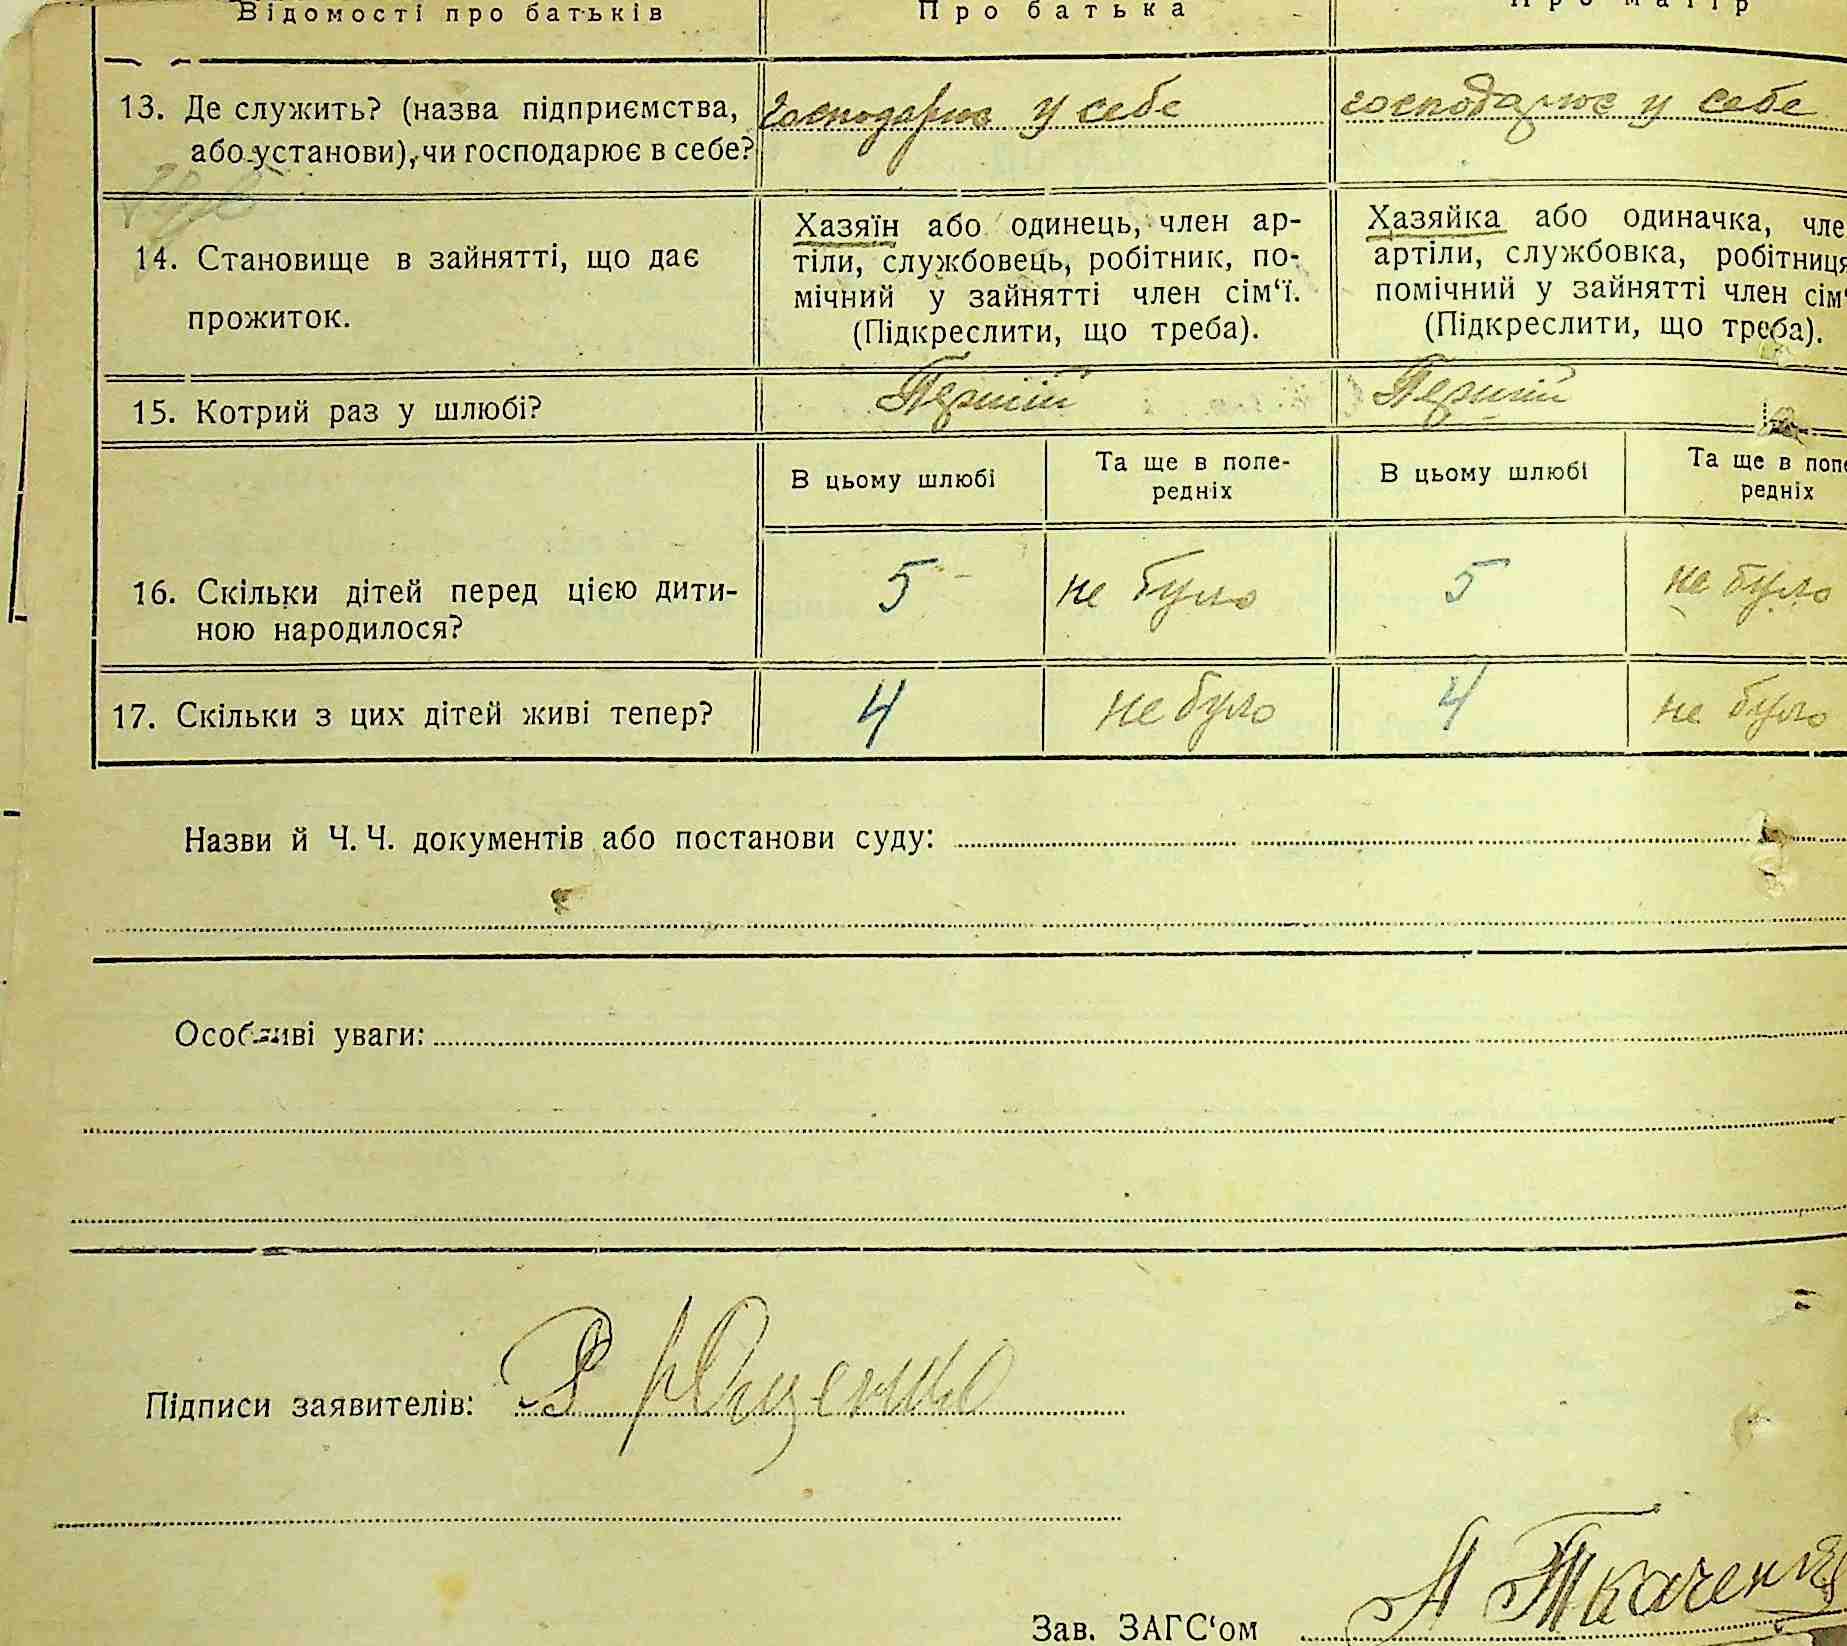 Відомості про батьків
Про батька
Про матір
13. Де служить? (назва підприємства,
або установи), чи господарює в себе?
господарює у себе
господарює у себе
14. Становище в зайнятті, що дає
прожиток.
Хазяїн або одинець, член ар-
тіли, службовець, робітник, по-
мічний у зайнятті член сім‘ї.
(Підкреслити, що треба).
Хазяйка або одиначка, чле
артіли, службовка, робітниця
помічний у зайнятті член сім‘
(Підкреслити, що треба).
15. Котрий раз у шлюбі?
Перший
Перший
В цьому шлюбі
Та ще в попе-
редніх
В цьому шлюбі
Та ще в попе
редніх
16. Скільки дітей перед цією дити-
ною народилося?
5
не було
5
не було
17. Скільки з цих дітей живі тепер?
4
не було
4
не було
Назви й Ч. Ч. документів або постанови суду:
Особливі уваги:
Підписи заявителів:
Зав. ЗАГС‘ом
А Ткаченко